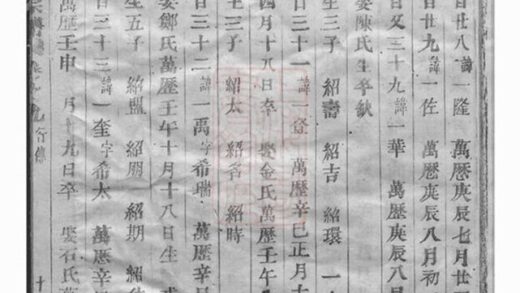 日廿八諱一隆 萬歷庚辰七月廿
日廿九諱一佐 萬歷庚辰八月初
日又三十九諱一華 萬歷庚辰八月
娶陳氏生卒缺
生三子 紹壽 紹吉 紹環 一
日三十一諱一登 萬歷辛巳正月十
四月十八日卒 娶金氏萬歷壬午
生三子 紹太 紹名 紹時
日三十二諱一禹字希瑞 萬歷辛
娶鄭氏萬歷壬午十月十八日生
生五子 紹盟 紹朋 紹期 紹
日三十三諱一奎字希太 萬歷辛
萬歷壬申 月十九日卒 娶石氏萬
行傳